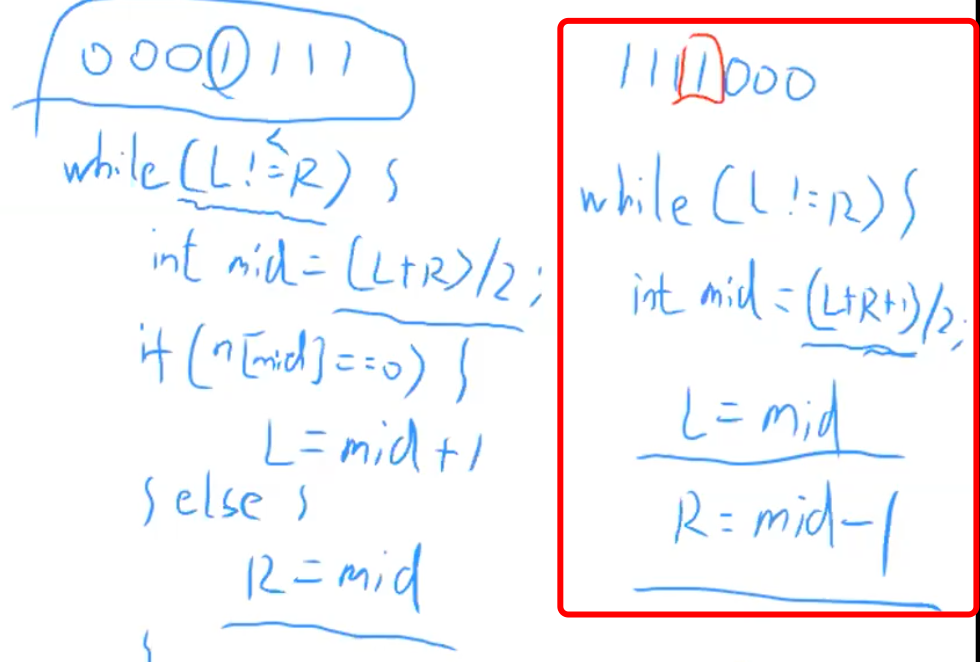 0001111
while (L!=R) {
<
int mid = (L+R)/2;
if (n[mid]==0) {
L = mid+1
} else {
R = mid
}
1111000
while (L!=R) {
int mid = (L+R+1)/2;
L = mid
R = mid-1